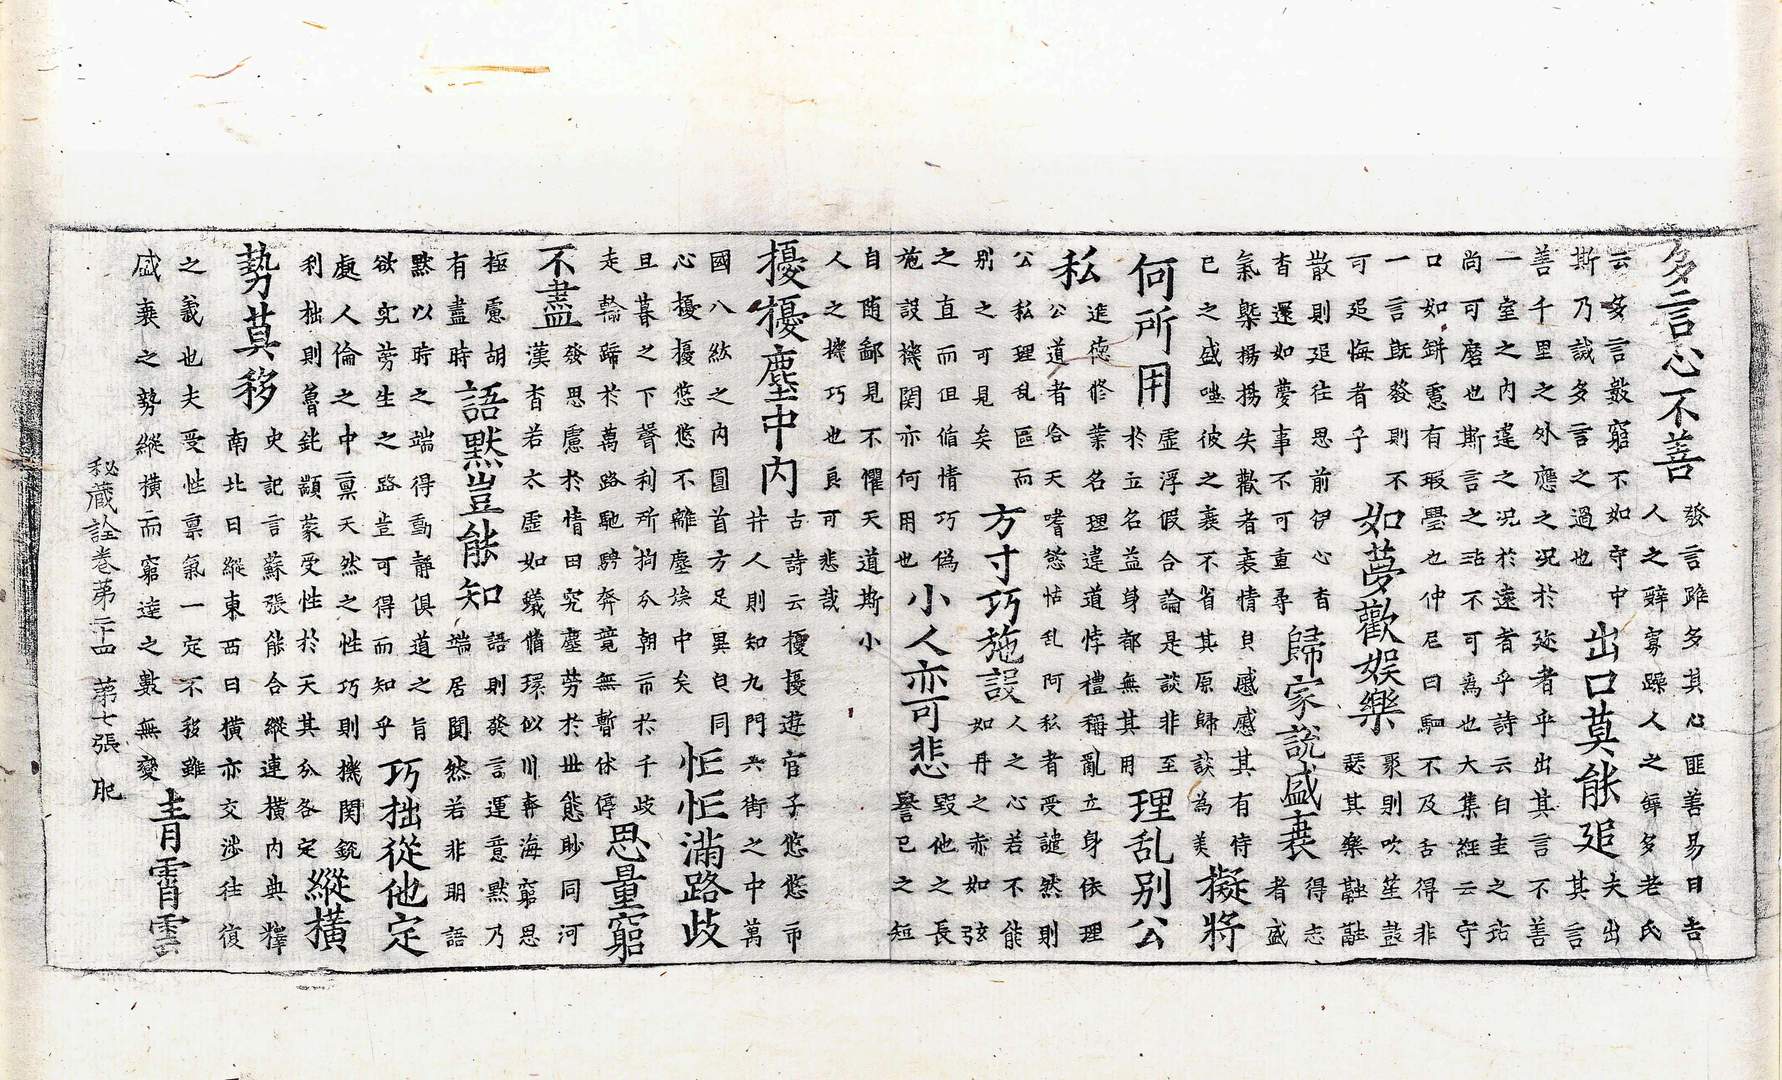 多言心不善
發言雖多其心匪善易曰吉
人之辭寡躁人之辭多老氏
云多言數窮不如守中
斯乃誡多言之過也
出口莫能追
夫出
其言
善千里之外應之况於迩者乎出其言不善
一室之內違之况於遠者乎詩云白圭之玷
尚可磨也斯言之玷不可為也大集經云守
口如缾慝有瑕舋也仲尼曰駟不及舌得非
一言既發則不
可追悔者乎
如夢歡娛樂
聚則吹笙鼓
瑟其樂融融
散則追往思前伊心杳
杳還如夢事不可重尋
歸家說盛衰
得志
者盛
氣槩揚揚失歡者哀情貟慼慼其有侍
已之盛嗤彼之衰不省其原歸談為美
擬將
何所用
虛浮假合論是談非至
於立名益身都無其用
理乱別公
私
進德修業名理違道悖禮稱亂立身依理
公道者合天嗜慾怙乱阿私者受譴然則
公私理乱區而
別之可見矣
方寸巧施設
人之心若不能
如丹之赤如弦
之直而但循情巧僞
施設機関亦何用也
小人亦可悲
毀他之長
譽已之短
自随鄙見不懼天道斯小
人之機巧也良可悲哉
擾擾塵中內
古詩云擾擾遊宦子悠悠市
井人則知九門六街之中萬
國八紘之內圓首方足異貟同
心擾擾悠悠不離塵埃中矣
恇恇滿路歧
旦暮之下聲利所拘分朝市於千歧
走輪蹄於萬路馳騁奔竟無暫休停
思量窮
不盡
發思慮於情田究塵勞於世態眇同河
漢杳若太虛如蟻循環似川奔海窮思
極慮胡
有盡時
語黙豈能知
語則發言運意黙乃
端居闃然若非明語
黙以時之端得動靜俱道之旨
欲究勞生之路豈可得而知乎
巧拙從他定
處人倫之中禀天然之性巧則機関銳
利拙則魯鈍顓蒙受性於天其分各定
縱橫
勢莫移
史記言蘇張能合縱連橫內典釋
南北曰縱東西曰橫亦交涉往復
之義也夫受性禀氣一定不移雖
盛衰之勢縱橫而窮達之數無變
青霄雲
秘蔵詮卷第二十四 第七張 肥